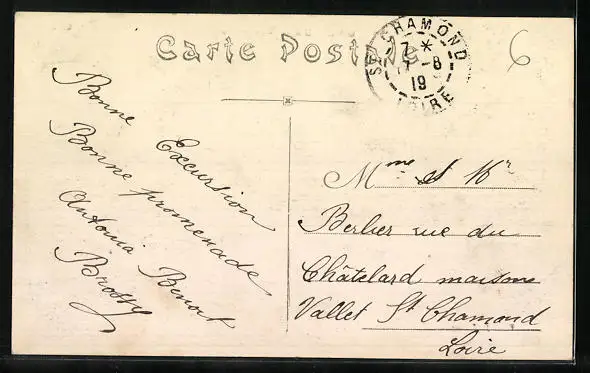 Carte Postale
ST CHAMOND
7 *
7-8
19
LOIRE
6
Bonne Excursion
Bonne promenade
Antonia Benoit
Brossy
Mme et Mr
Berlier rue du
Châtelard maison
Vallet St Chamond
Loire